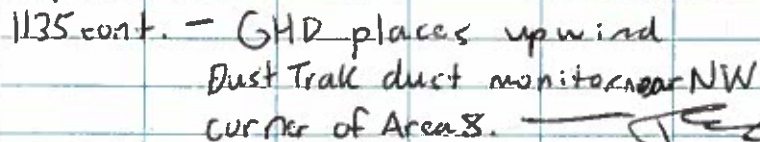 1135 cont. - GHD places upwind
Dust Trak dust monitor near NW
corner of Area 8.